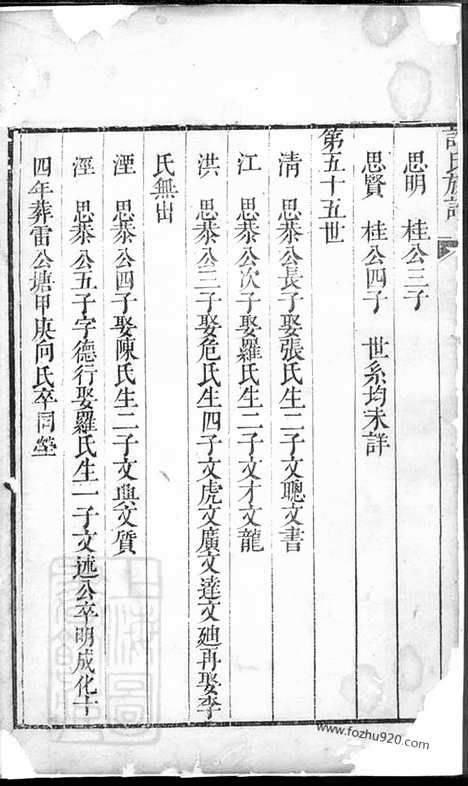 氏族譜
思明　桂公三子
思賢　桂公四子　世系均未詳
第五十五世
清　思恭公長子娶張氏生二子文聰文書
江　思恭公次子娶羅氏生二子文才文龍
洪　思恭公三子娶危氏生四子文虎文廣文達文廸再娶李
氏無出
湮　思恭公四子娶陳氏生二子文典文質
涇　思恭公五子字德行娶羅氏生一子文述公卒明成化十
四年葬雷公塘甲庚向氏卒同塋
www.fozhu920.com